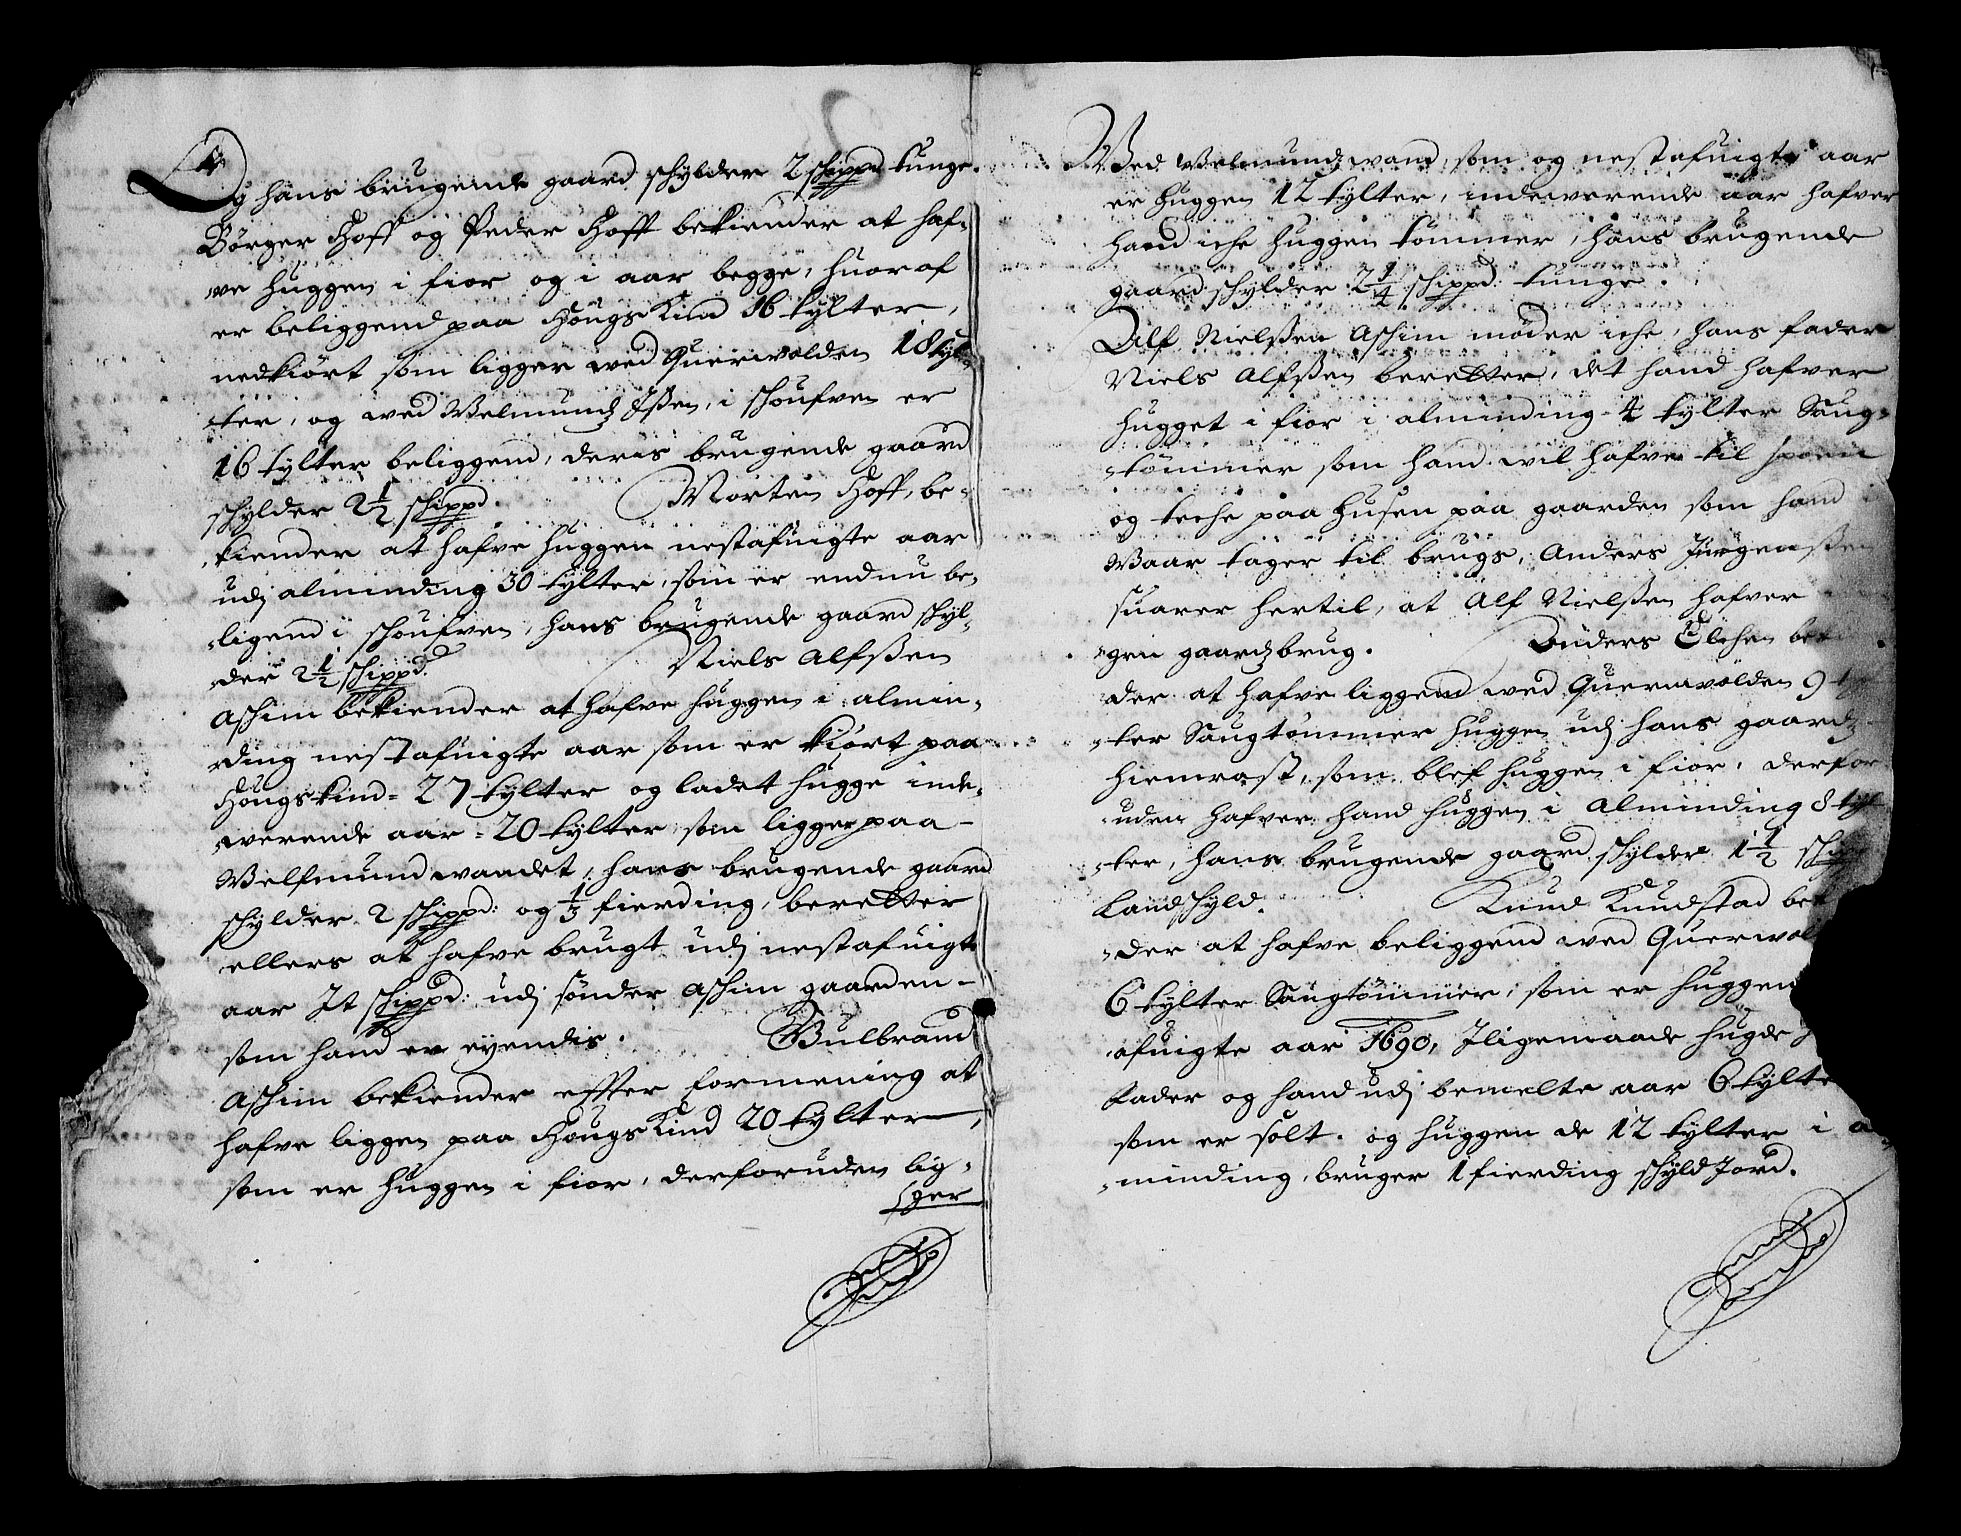 Og hans brugende gaard schylder 2 schippd tunge.
Börger Hoff og Peder Hoff bekiender at haf-
ve huggen i fior og i aar begge, huoraf
er beliggend paa HougsKind 16 tylter,
nedkiört som ligger ved Querwolden 18 tyl-
ter, og ved i schoufven er
16 tylter beliggend, deris brugende gaard
schylder 2½ schippd. Morten Hoff, be-
kiender at hafve huggen nestafuigte aar
udj alminding 30 tylter, som er endnu be-
ligend i schoufven, hans brugende gaard schyl-
der 2½ schippd. Niels Alfssen
Aschim bekiender at hafve huggen i almin-
ding nestafuigte aar som er kiört paa
Hougskind = 27 tylter og ladet hugge inde-
werende aar = 20 tylter som ligger paa
Welfmundwandet, hans brugende gaard
schylder 2 schippd: og ⅓ fierding, beretter
ellers at hafve brugt udj nestafuigte
aar It schippd: udj sönder Aschim gaarden
som hand er eyendis. Gulbrand
Aschim bekiender effter formening at
hafve liggen paa HougsKind 20 tylter,
som er huggen i fior, derforuden lig-
ger
Wed Welmunds wand, som og nestafuigte aar
er huggen 12 tylter, indewerende aar hafver
hand iche huggen tömmer, hans brugende
gaard schylder 2¼ schippd: tunge.
Alf Nielssen Aschim möder iche, hans fader
Niels Alfssen beretter, det hand hafver
hugget i fior i alminding 4 tylter Saug-
tömmer som hand wil hafve til
og teche paa husen paa gaarden som hand i
Waar tager til brugs, Anders Jürgenssen
suarer hertil, at Alf Nielssen hafver
gen gaardsbrug. Anders Elchen
der at hafve liggend ved Querwolden 9
ter Saugtömmer huggen udj hans gaards
hiemrast, som blef huggen i fior, derfor
uden hafver hand huggen i Alminding 8 tyl
ter, hans brugende gaard schylder 1½
Landschyld. Knud Knudstad
der at hafve beliggend ved
6 tylter Saugtömmer, som er huggen
afuigte aar 1690, Iligemaade hugde
fader og hand udj bemelte aar 6
som er solt. og huggen de 12 tylter i
minding, bruger 1 fierding schyld Jord.